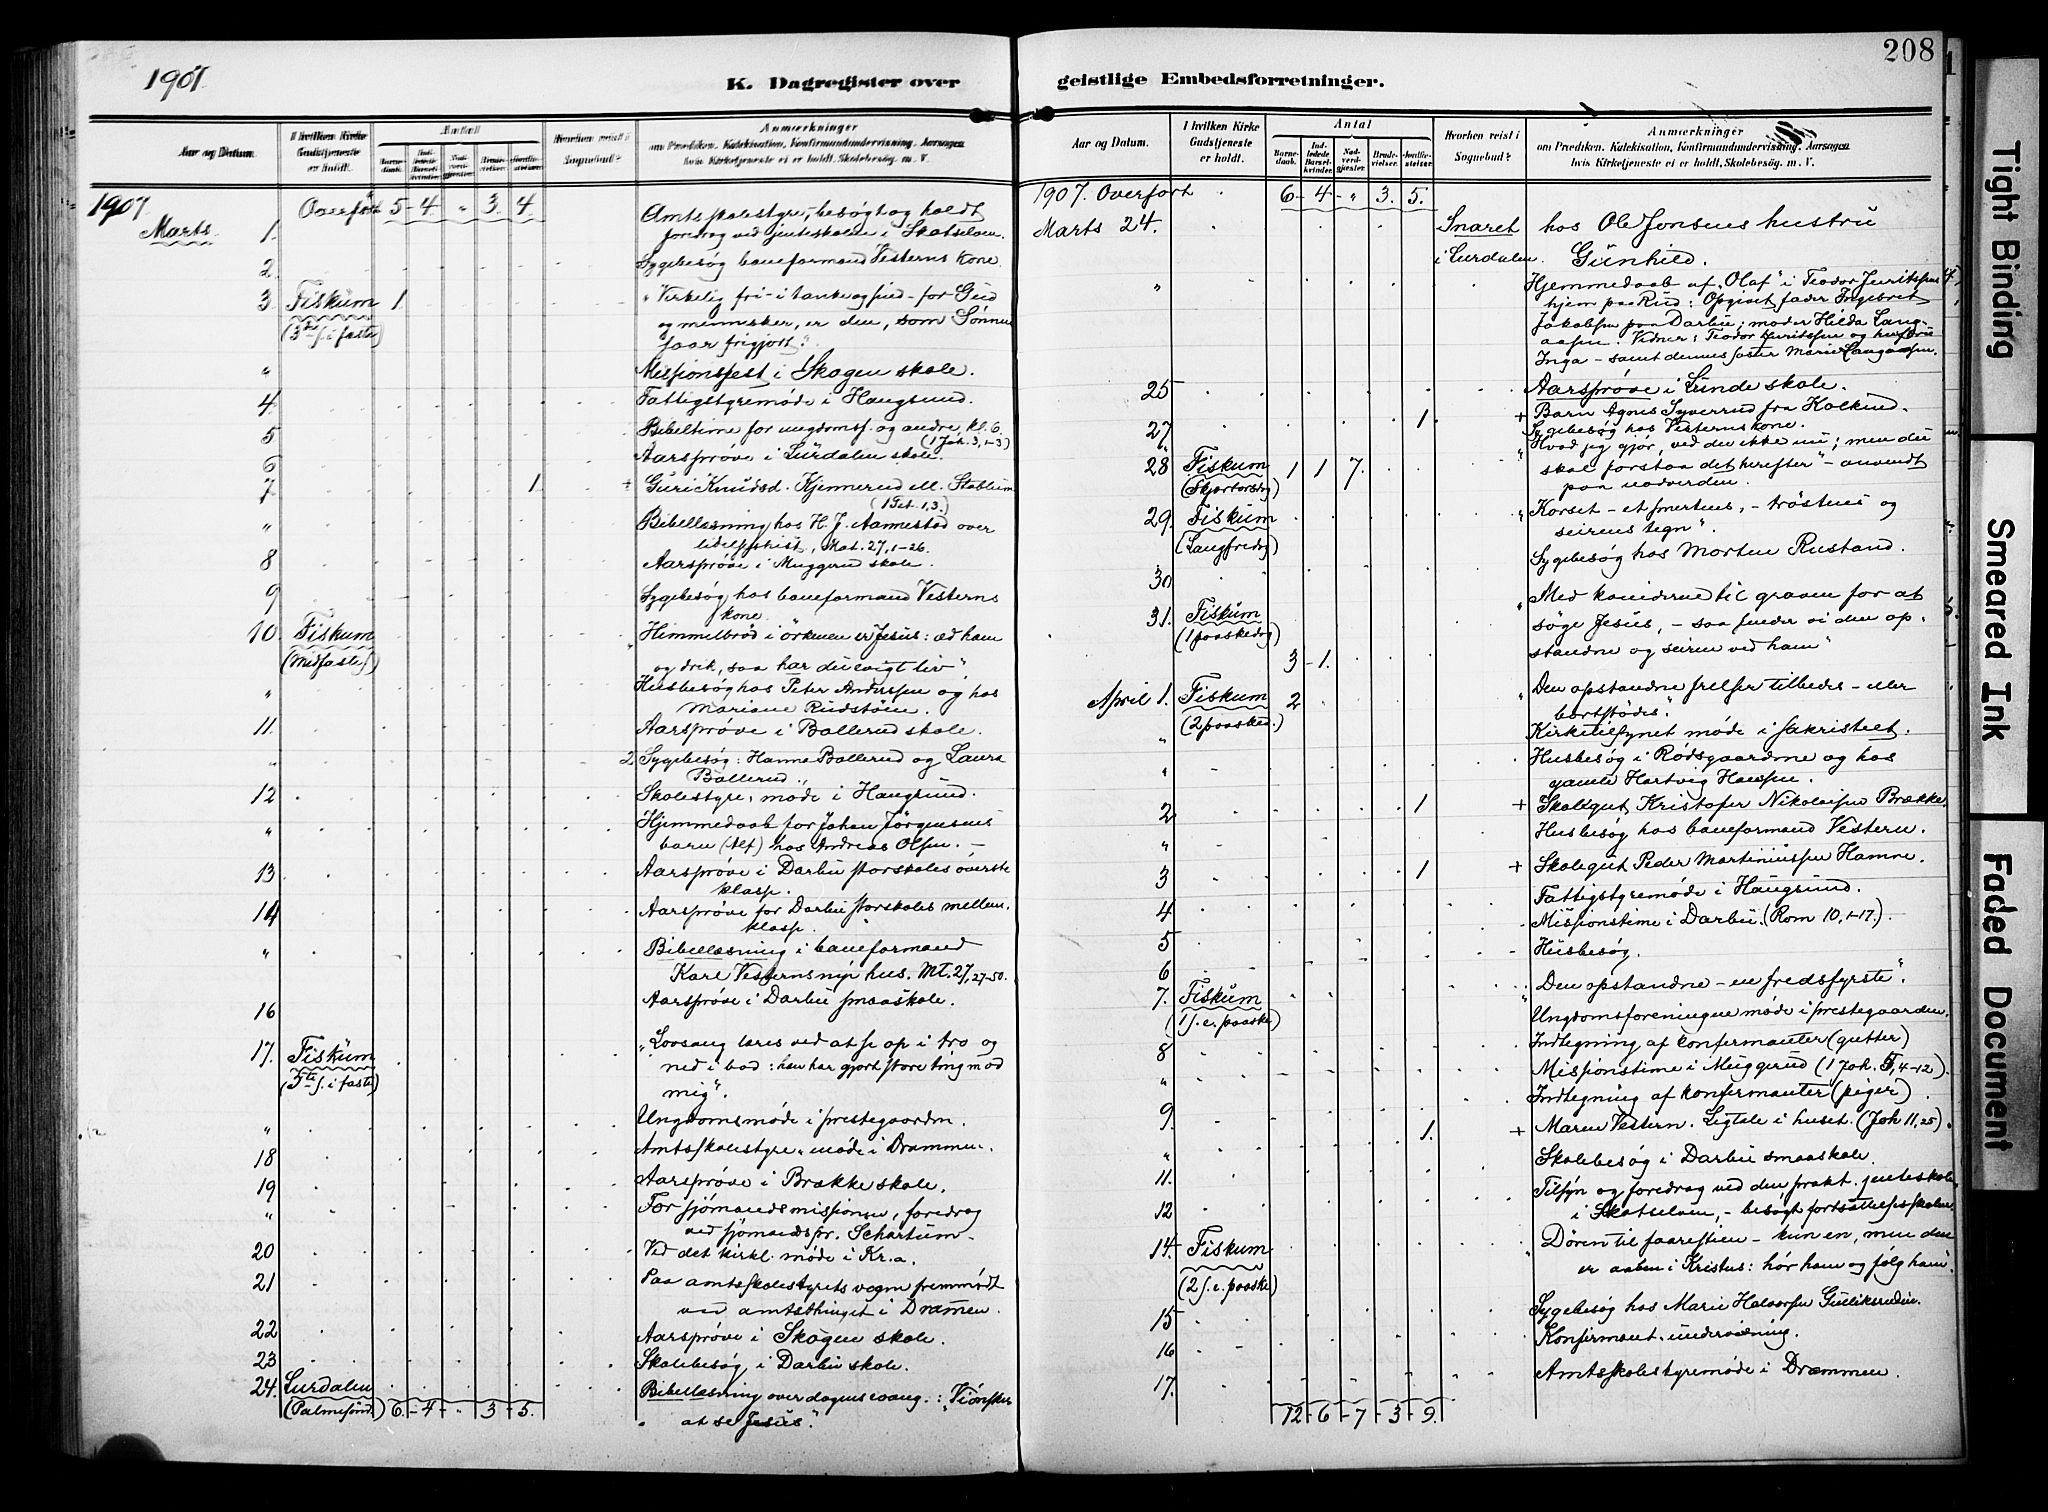 208
1907
K. Dagregister over
geistlige Embedsforretninger.
Aar og Datum.
I hvilken Kirke Gudstjeneste er holdt.
Antal
Barnedaab.
Indledede Barselkvinder.
Nadverdgjester.
Brudevielser.
Jordfæstelser.
Hvorhen reist i Sognebud?
Anmærkninger
om Prædiken, Katekisation, Konfirmandundervisning, Aarsagen
hvis Kirketjeneste ei er holdt, Skolebesög. m. V.
1907 Overført 5 - 4 " 3 4
Marts 1. Amtsskolestyre, - besøgt og holdt
foredrag ved jenteskolen i Skotselven.
2 Sygebesøg baneformand Vesterns kone.
3 Fiskum 1 "Virkelig fri - i tanke og sind - for Gud
(3die s. i faste) og mennesker, er den, som Sønnen
faar frigjort".
" Missionsfest i Skogen skole.
4 Fattigstyremøde i Haugsund.
5 Bibeltime for ungdomsf. og andre, kl. 6.
(1 Joh. 3, 1-3)
6 Aarsprøve i Lurdalen skole.
7 1 + Guri Knudsd. Kjennerud ell. Stablum
(1 Pet. 1, 3.)
" Bibellæsning hos H. J. Aannestad over
lidelseshist., Mat. 27, 1-26.
8 Aarsprøve i Muggerud skole.
9 Sygebesøg hos baneformand Vesterns
kone.
10. Fiskum "Himmelbrød i örkenen er Jesus: æd ham
(Midfaste) og drik, saa har du evigt liv".
" Husbesøg hos Peter Anderssen og hos
Mariane Rudstøen.
11. Aarsprøve i Bollerud skole.
" 2 Sygebesøg: Hanna Bollerud og Laura
Bollerud.
12 Skolestyre, møde i Haugsund.
" Hjemmedaab for Johan Jörgensens
barn (Alf) hos Andreas Olsen. -
13 Aarsprøve i Darbu storskoles øverste
klasse.
14 Aarsprøve for Darbu storskoles mellem.
klasse.
" Bibellæsning i baneformand
Karl Vesterns nye hus. Mt. 27, 27-50.
16 Aarsprøve i Darbu smaaskole.
17. Fiskum "Lovsang læres ved at se op i tro og
(5te s. i faste) ned i bod: han har gjort store ting mod
mig".
" Ungdomsmøde i prestegaarden.
18 Amtsskolestyre, møde i Drammen.
19 Aarsprøve i Brække skole.
" For sjømandsmissionen, foredrag
ved sjømandspr. Schartum.
20 Ved det kirkl. møde i Kr.a.
21 Paa amtsskolestyrets vegne fremmødt
ved amtsthinget i Drammen.
22 Aarsprøve i Skogen skole.
23 Skolebesøg i Darbu skole.
24. Lurdalen Bibellæsning over dagens evang.: "Vi ønske
(Palmesønd.) 6 - 4 - " 3 - 5. at se Jesus".
1907. Overført 6 - 4 - " 3. 5.
Marts 24. Snaret hos Ole Jonsens hustru
i Lurdalen. Gunhild.
" Hjemmedaab af "Olaf" i Teodor Juritssens
hjem paa Rud: Opgivet fader Ingebret
Jakobsen paa Darbu; moder Hilda Lang-
aasen. Vidner: Teodor Juritssen og hustru
Inga - samt dennes søster Marie Langaasen.
25 Aarsprøve i Lunde skole.
27 1 + Barn Agnes Syverrud fra Kolkind.
" Sygebesøg hos Vesterns kone.
28 Fiskum 1 1 7 "Hvad jeg gjør, ved du ikke nu; men du
(Skjærtorsdag) skal forstaa det herefter" - anvendt
paa nadverden.
29. Fiskum "Korset - et smertens, - trøstens og
(Langfredag) seirens tegn".
30 Sygebesøg hos Morten Rustand.
31. Fiskum "Med kvinderne til graven for at
(1 paaskedag) søge Jesus, - saa finder vi den op-
3 - 1. standne og seiren ved ham"
April 1. Fiskum 2 "Den opstandne frelser tilbedes - eller
(2 paasked.) bortstødes".
" Kirketilsynet møde i sakristeet.
" Husbesøg i Rødsgaardene og hos
gamle Hartvig Hansen.
2 1 + Skolegut Kristofer Nikolaisen Brække.
" Husbesøg hos baneformand Vestern.
3 1 + Skolegut Peder Martiniussen Hamre.
4 Fattigstyremøde i Haugsund.
5 Missionstime i Darbu. (Rom 10, 1-17).
6 Husbesøg.
7. Fiskum "Den opstandne - en fredsfyrste".
(1 s. e. paaske) Ungdomsforeningens møde i prestegaarden.
8 Indtegning af konfirmanter (gutter)
" Missionstime i Muggerud (1 Joh. 5, 4-12).
9 Indtegning af konfirmanter (piger)
1. + Maren Vestern. Ligtale i huset. (Joh 11, 25).
" Skolebesøg i Darbu smaaskole.
11. Tilsyn og foredrag ved den prakt. jenteskole
12 i Skotselven, - besøgt fortsættelsesskolen.
14. Fiskum "Døren til faarestien - kun en, men den
(2 s. e. paaske) er aaben i Kristus: hør ham og følg ham".
15 Sygebesøg hos Marie Halvorsen Gulliksrudin.
16 Konfirmant. undervisning.
17. Amtsskolestyremøde i Drammen.
12 - 6 - 7 - 3 - 9.
Tight Binding
Smeared Ink
Faded Document